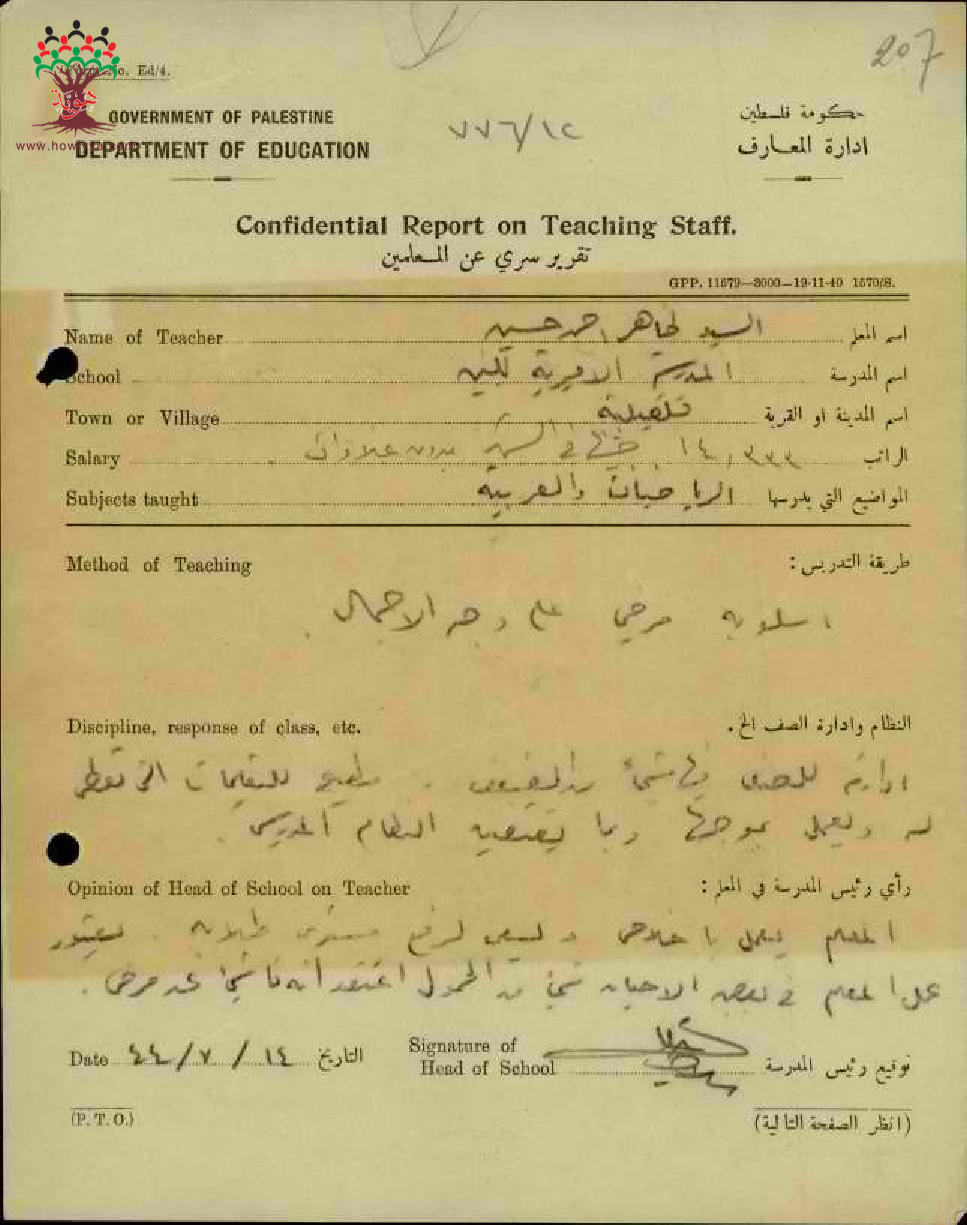 207
No. Ed/4.
GOVERNMENT OF PALESTINE
حكومة فلسطين
هوية
www.how
DEPARTMENT OF EDUCATION
ادارة المعارف
٧٧٦/١٢
Confidential Report on Teaching Staff.
تقرير سري عن المعلمين
GPP. 11679—3000—19-11-40 1570/S.
Name of Teacher السيد طاهر احمد حسين اسم المعلم
School المدرسة الاميرية للبنين اسم المدرسة
Town or Village قلقيلية اسم المدينة او القرية
Salary ١٤,٣٣٣ جنيها في الشهر بدون علاوات الراتب
Subjects taught الرياضيات والعربية المواضيع التي يدرسها
Method of Teaching طريقة التدريس:
اسلوبه مرضي على وجه الاجمال.
Discipline, response of class, etc. النظام وادارة الصف الخ.
ادارته للصف فيها شيء من الضعف. مطيع للتعليمات التي تعطى
له ويعمل بموجبها وبما يقتضيه النظام المدرسي.
Opinion of Head of School on Teacher رأي رئيس المدرسة في المعلم:
المعلم يعمل باخلاص ويسعى لرفع مستوى طلابه. يعتور
عمل المعلم في بعض الاحيان شيء من الخمول اعتقد انه ناشئ عن مرض.
Date ٤٤/٧/١٤ التاريخ
Signature of
Head of School توقيع رئيس المدرسة
(P. T. O.)
(انظر الصفحة التالية)